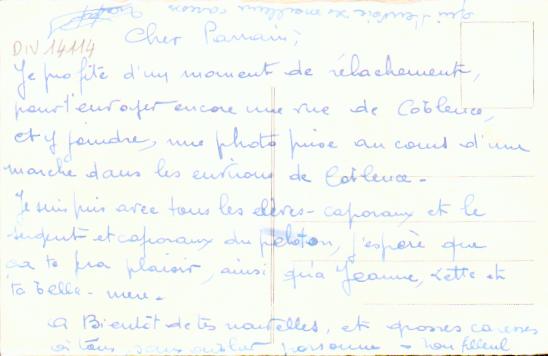 qui t'envoie ses meilleurs baisers
DIV 14114
Cher Parrain,
Je profite d'un moment de relachement,
pour t'envoyer encore une vue de Coblence,
et y joindre, une photo prise au cours d'une
marche dans les environs de Coblence -
Je suis pris avec tous les élèves-caporaux et le
sergent et caporaux du peloton, j'espère que
ca te fra plaisir, ainsi qu'a Jeanne, et
ta belle-mere.
a Bientôt de tes nouvelles, et grosses caresses
à tous, sans oublier personne - ton filleul